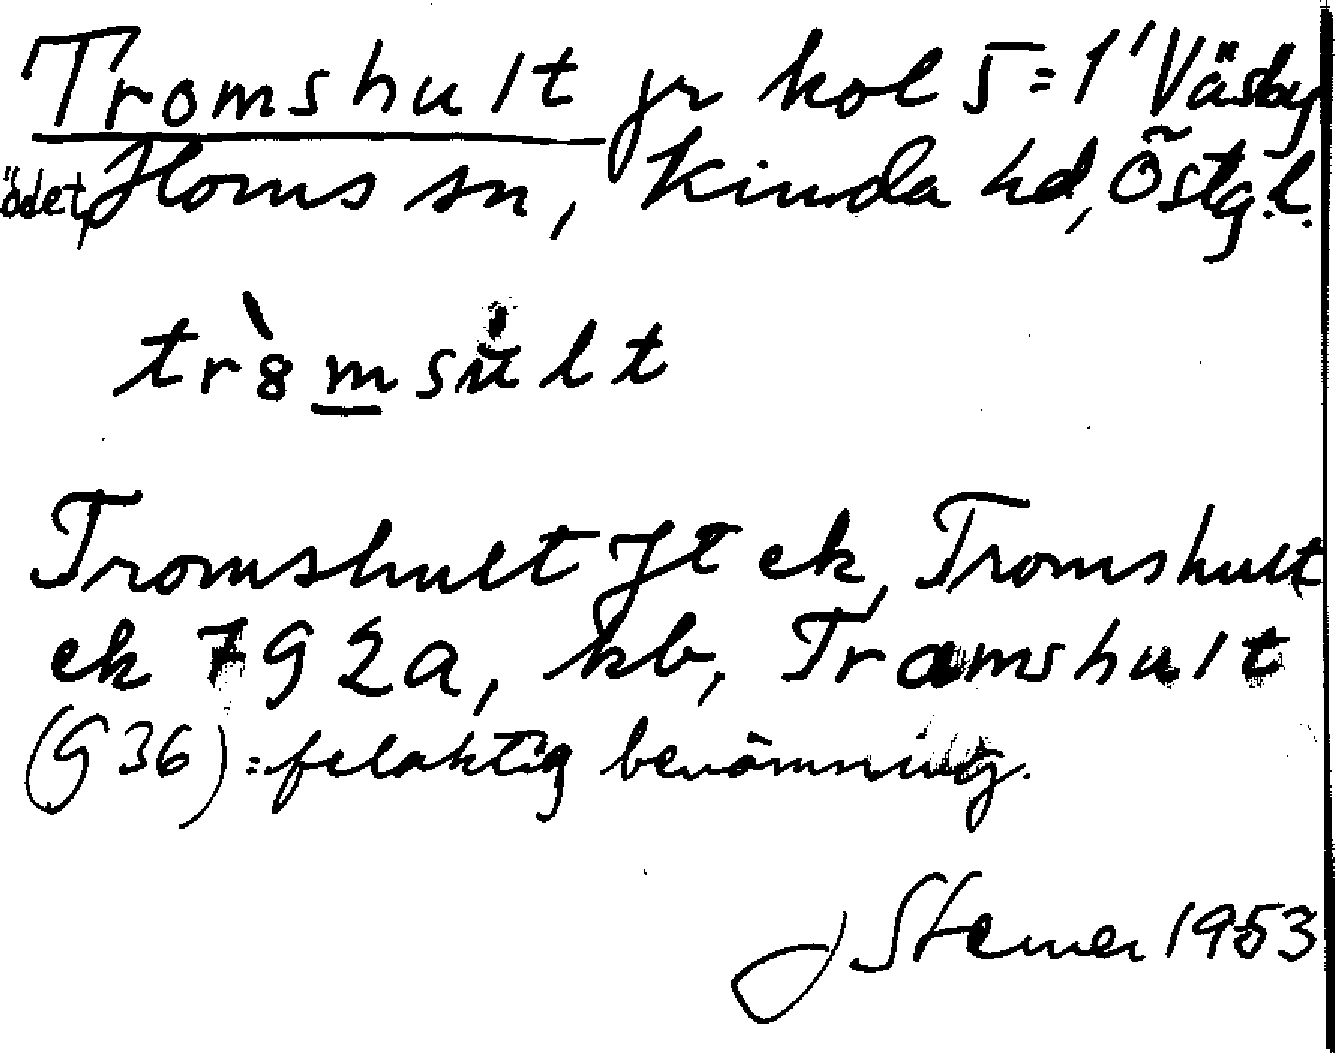 Tromshult fr kol 5=1' Väsby
ödet, Horns sn, Kinda hd, Östg.l.
tr8msult
Tromshult Jt ek, Tromshult
ek 792a, kb, Tramshult
(G 36) = felaktig benämning.
J Stemer 1953